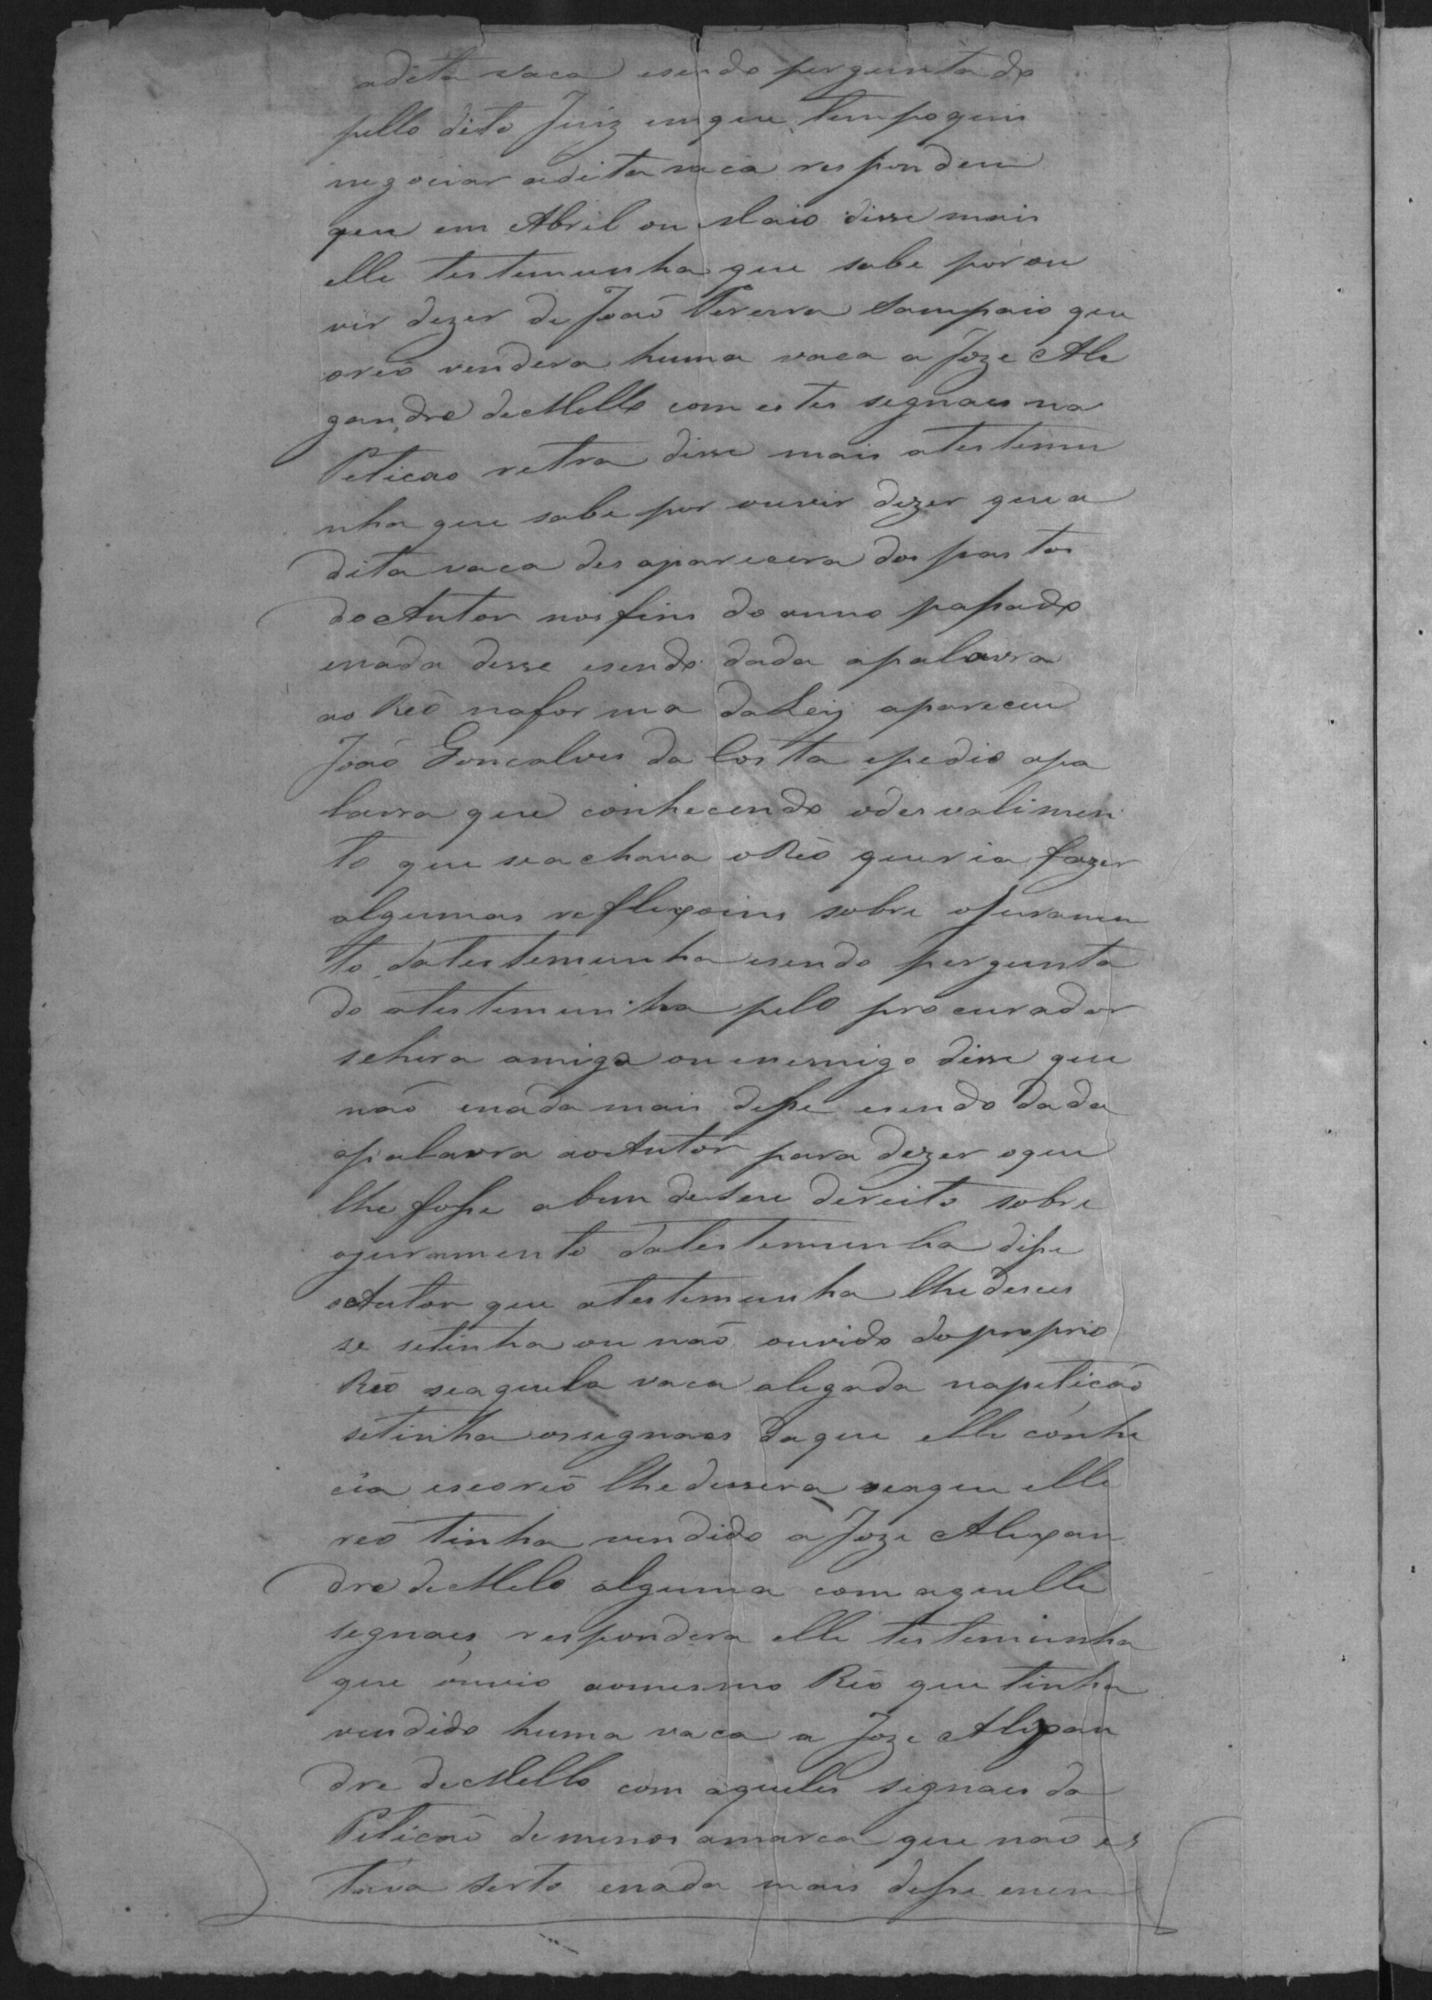 adita vaca esendo perguntado
pello dito Juiz emque tempo quis
negociar adita vaca respondeu
que em Abril ou Maio disse mais
elle testemunha que sabe por ou
vir dezer de João Pereira Sampaio que
oreó vendera huma vaca a Joze Ale
gandre deMello com estes segnaes na
Peticao retra disse mais atestemu
nha que sabe por ouvir dezer que a
dita vaca desaparecera dos pastos
doAutor nos fins do anno paſsado
enada desse esendo dada apalavra
ao Reó naforma daLeij apareceu
João Goncalves da Costa epedio apa
lavra que conhecendo odesvalimen
to que seachava oReó queria fazer
algumas reflexoins sobre ojuramen
to datestemunha esendo pergunta
do atestemunha pelo procurador
sehera amigo ou enemigo disse que
não enada mais deſse esendo dada
apalavra aoAutor para dezer oque
lhe foſse abem deseu dereito sobre
ojuramento datestemunha diſse
oAutor que atestemunha lhe deces
se setinha ou não ouvido doproprio
Reó seaquela vaca alegada napetição
setinha ossegnaes daque elle conhe
cia eseoreó lhe dessera seaque elle
reó tinha vendido a Joze Alexan
dre deMelo alguma com aquelle
segnaes respondera elle testemunha
que ouvio aomesmo Reó que tinha
vendido huma vaca a Joze Alexan
dre deMello com aqueles segnaes da
Peticaó demenos amarca que não es
tava serto enada mais deſse enem